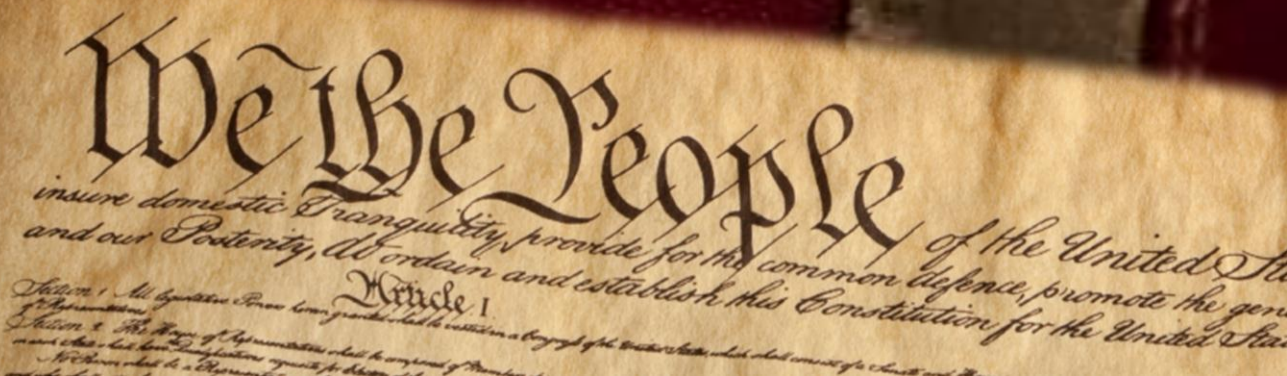 We the People of the United
insure domestic Tranquility, provide for the common defence, promote the
and our Posterity, do ordain and establish this Constitution for the United
Article I.
Section 1 All legislative Powers herein granted shall be vested in a Congress of the United States, which shall consist of a Senate and
of Representatives
Section 2 The House of Representatives shall be composed of Members